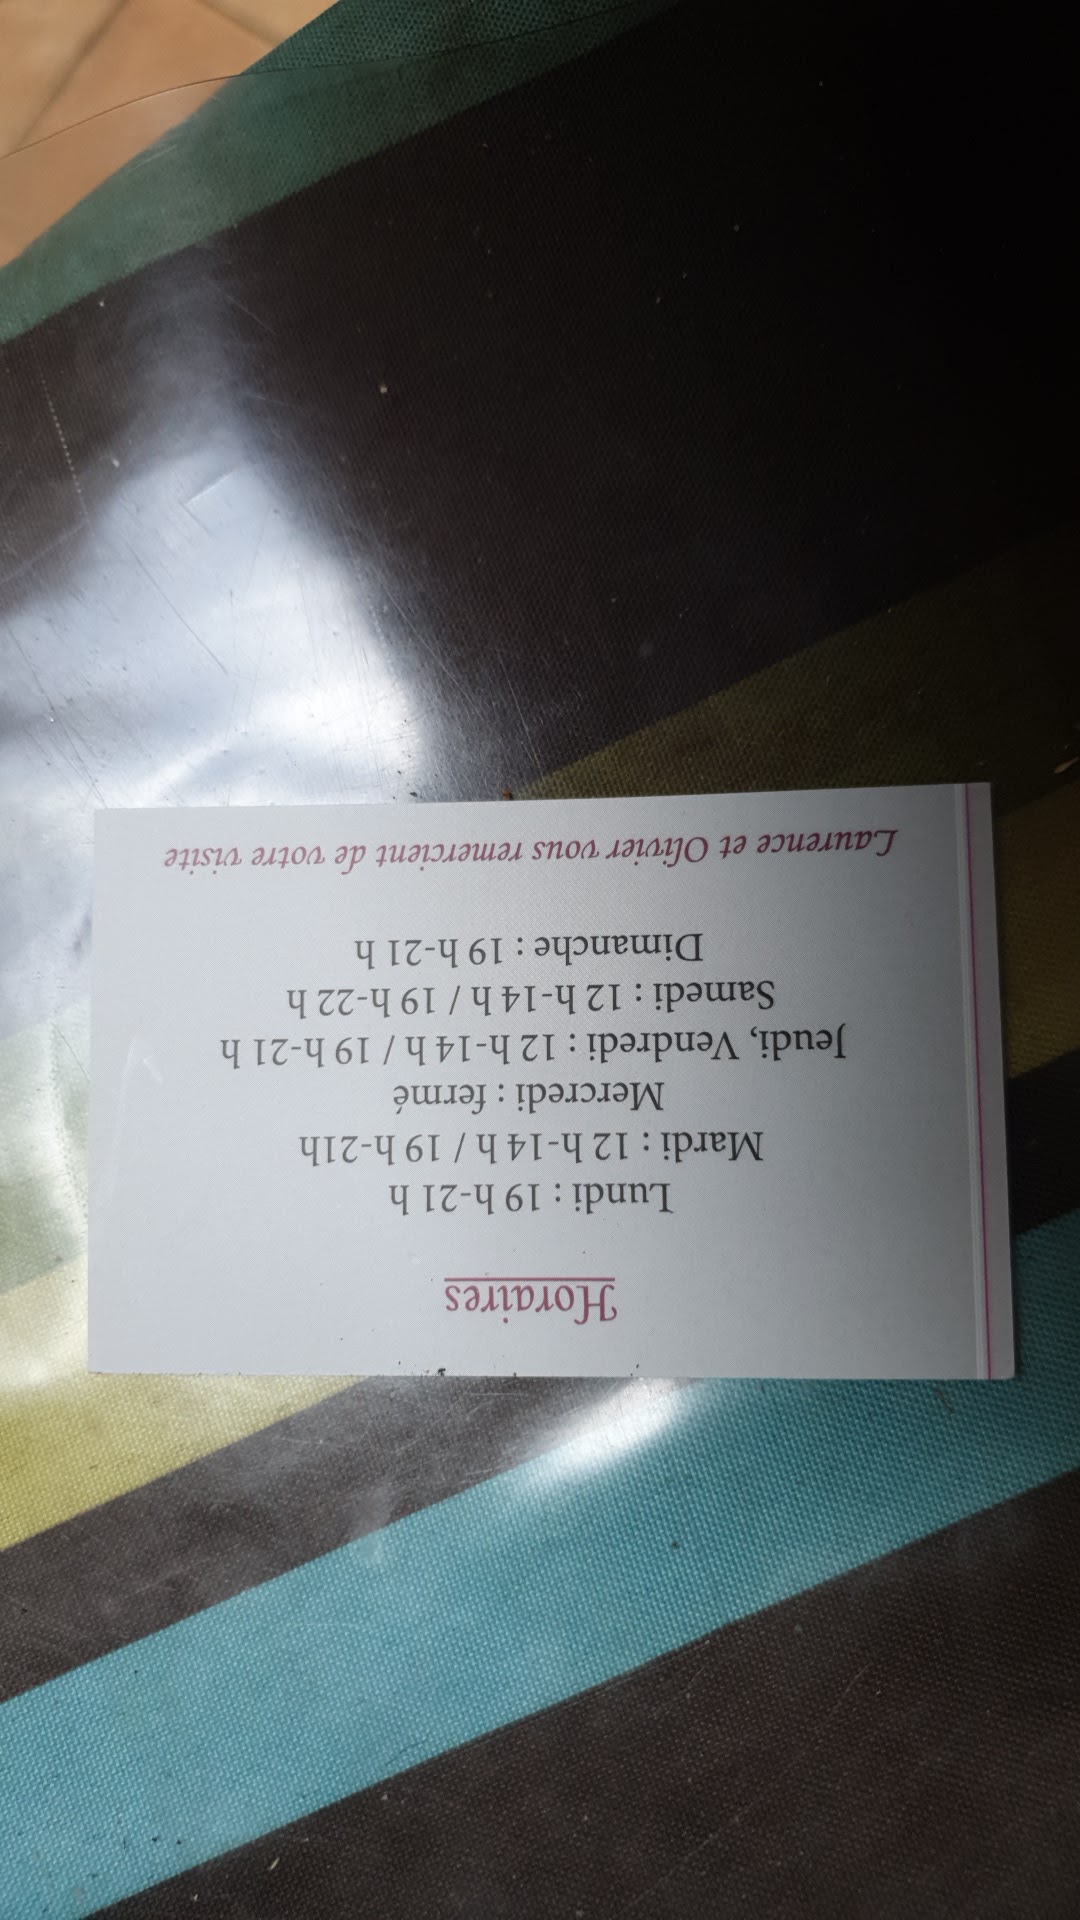 Horaires
Lundi : 19 h-21 h
Mardi : 12 h-14 h / 19 h-21h
Mercredi : fermé
Jeudi, Vendredi : 12 h-14 h / 19 h-21 h
Samedi : 12 h-14 h / 19 h-22 h
Dimanche : 19 h-21 h
Laurence et Olivier vous remercient de votre visite